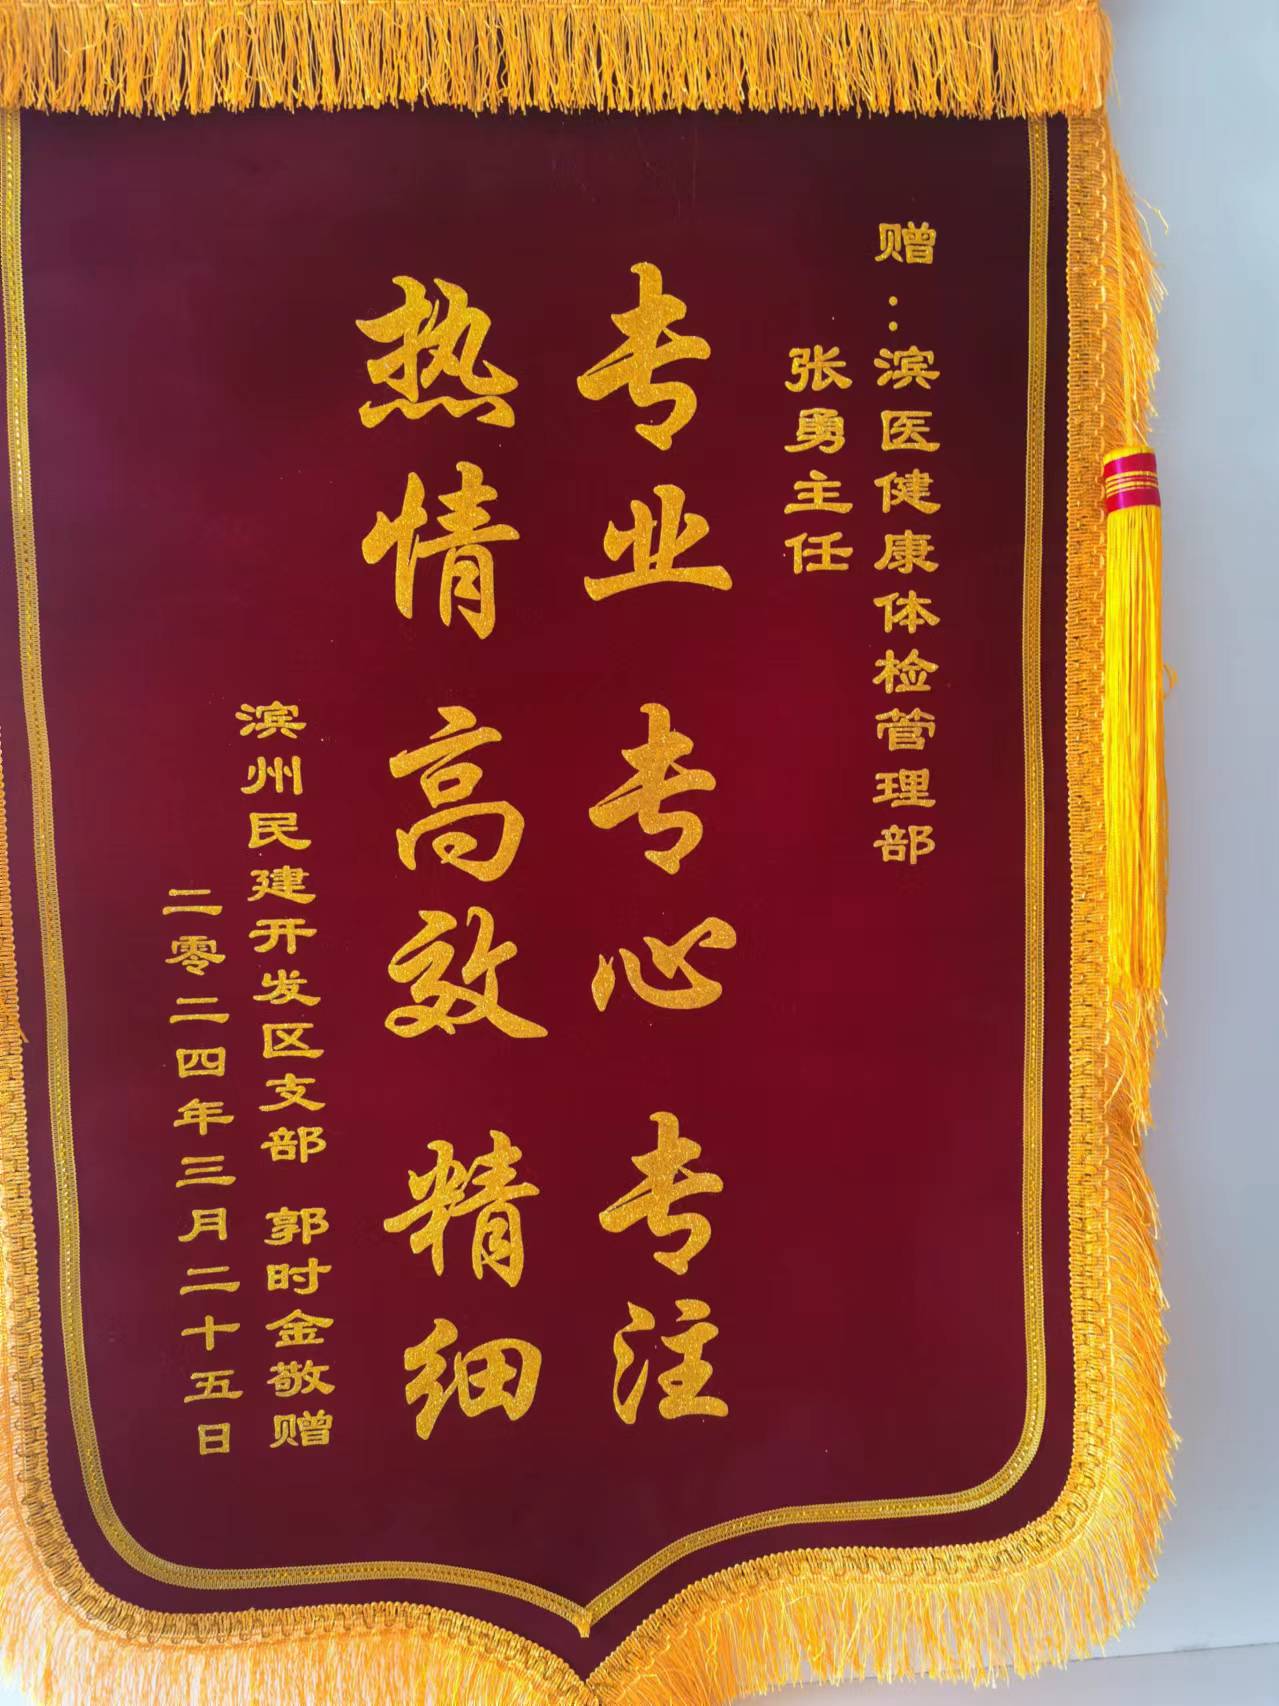 赠：滨医健康体检管理部
张勇主任
专业 专心 专注
热情 高效 精细
滨州民建开发区支部 郭时金敬赠
二零二四年三月二十五日